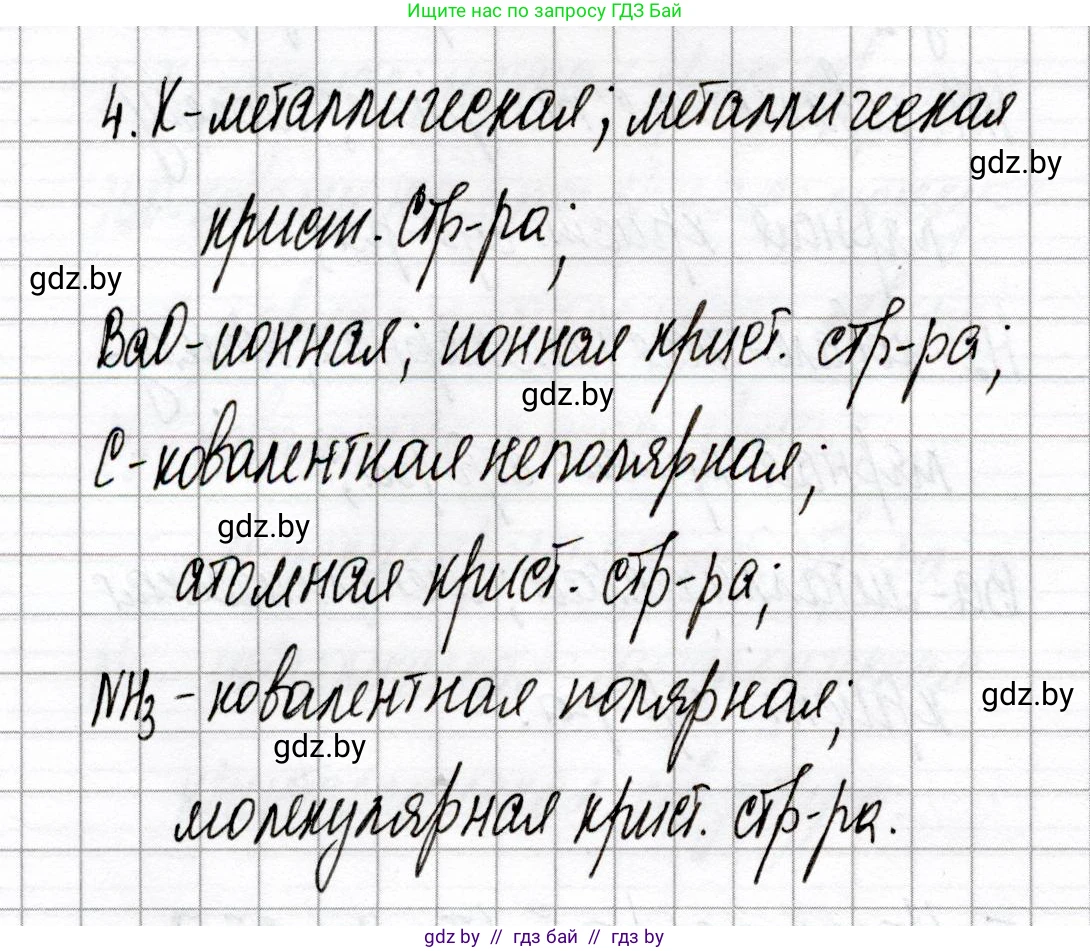 Ищите нас по запросу ГДЗ Бай
4. К-металлическая; металлическая
gdz.by
крист. стр-ра;
gdz.by
BaO-ионная; ионная крист. стр-ра;
gdz.by
C-ковалентная неполярная;
gdz.by
атомная крист. стр-ра;
NH3 - ковалентная полярная;
gdz.by
gdz.by
молекулярная крист. стр-ра.
gdz.by // гдз бай // гдз by